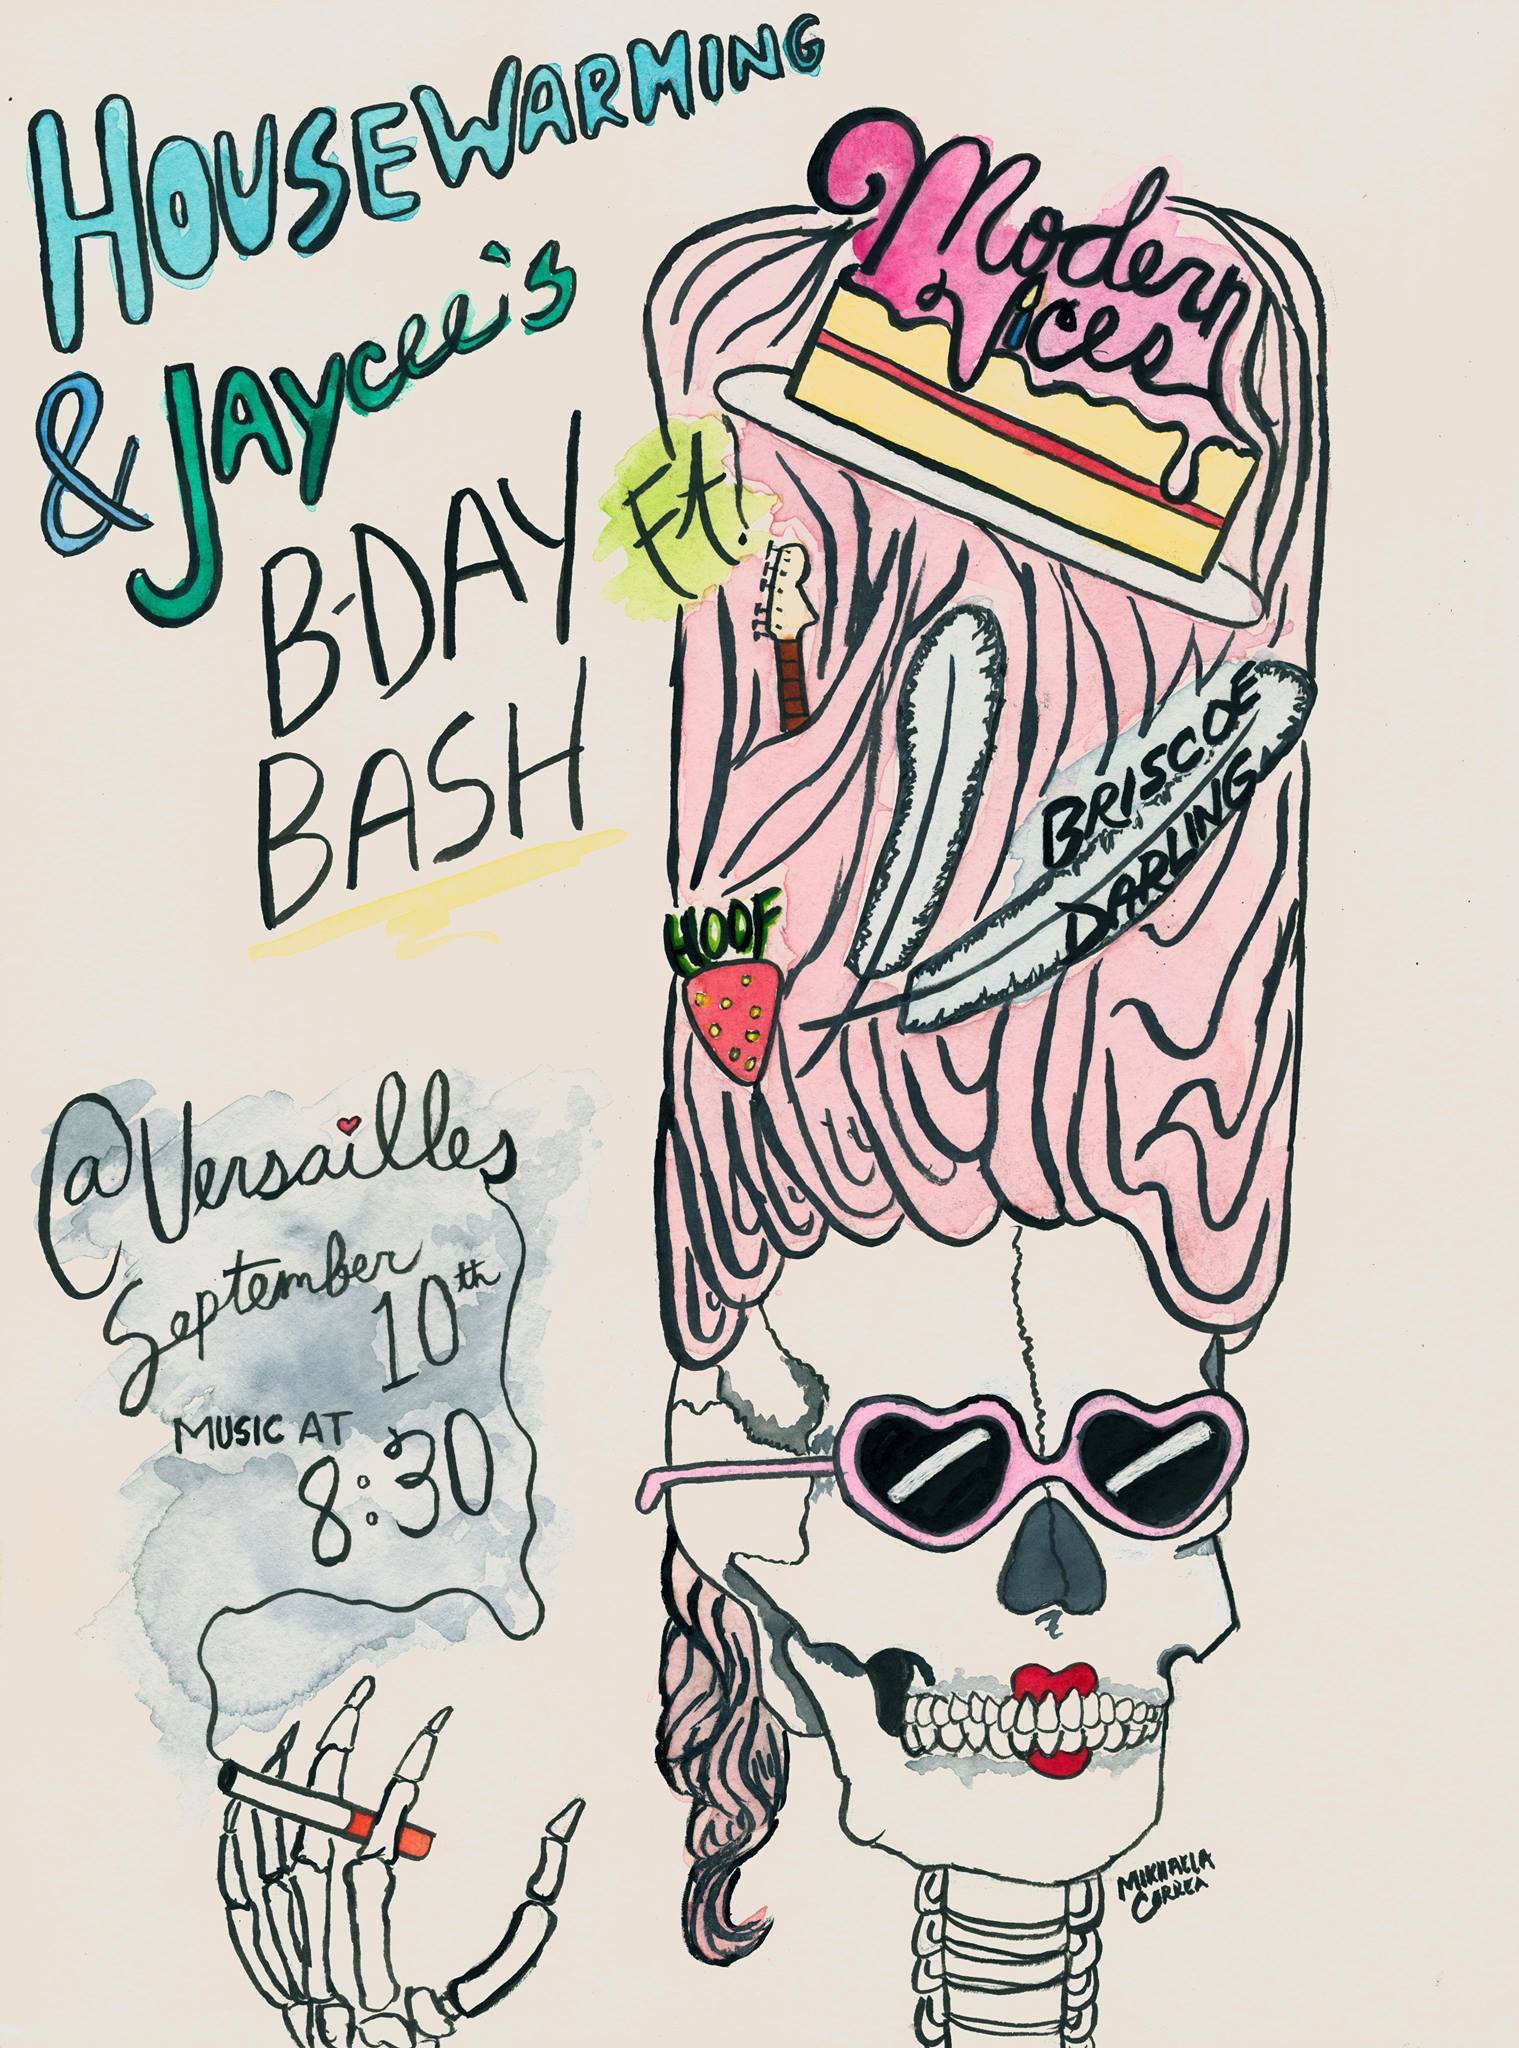 HOUSEWARMING
& JAYcee's
B-DAY
BASH
Ft!
Modern
Vices
BRISCOE
DARLING
HOOF
@Versailles
September
10th
MUSIC AT
8:30
MIKHAELA
CORREA